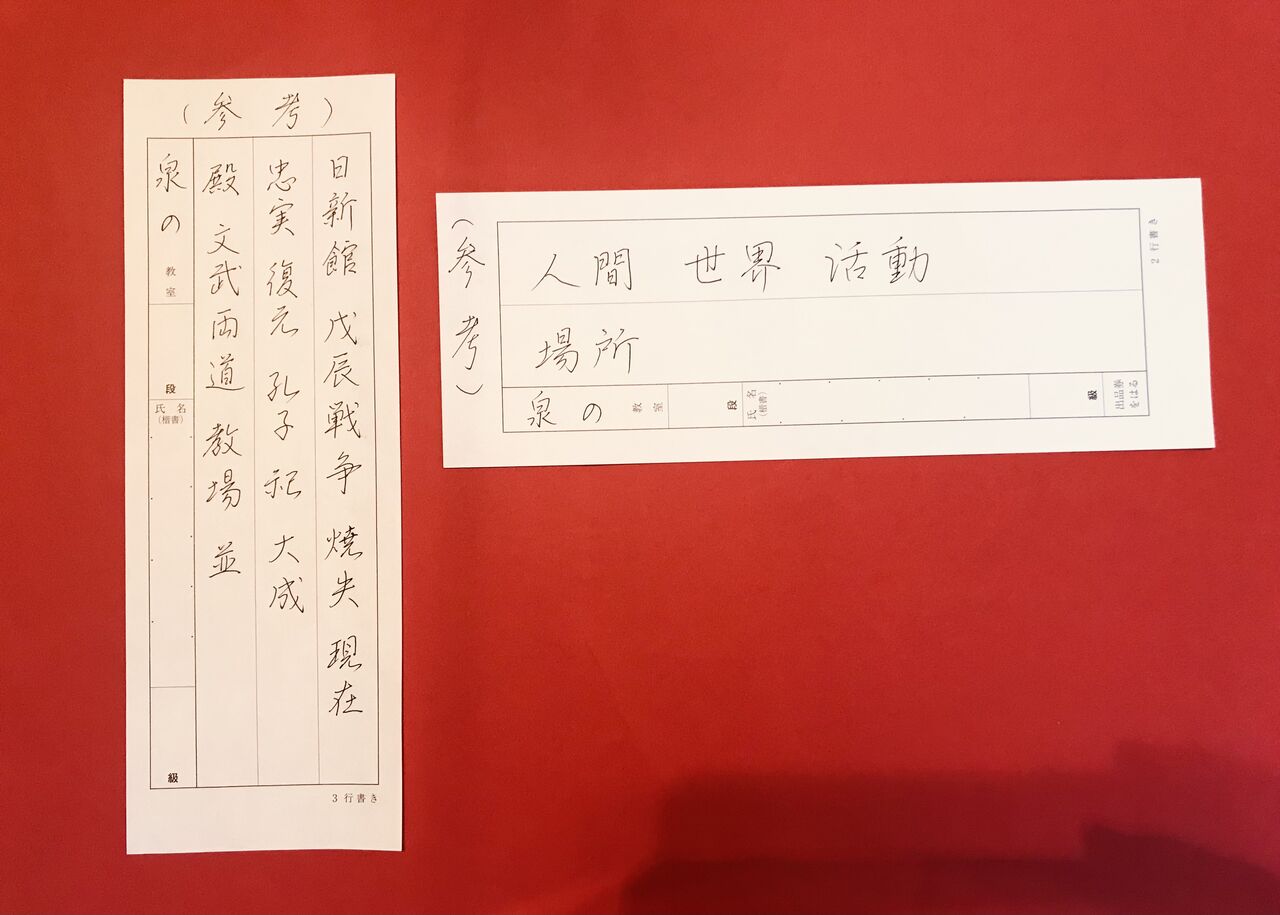 (参考)
日新館 戊辰戦争 焼失 現在
忠実 復元 孔子 祀 大成
殿 文武両道 教場 並
泉の 教室 段 氏名(楷書) 級
3行書き
(参考)
人間 世界 活動
場所
泉の 教室 段 氏名(楷書) 級 出品券をはる
2行書き